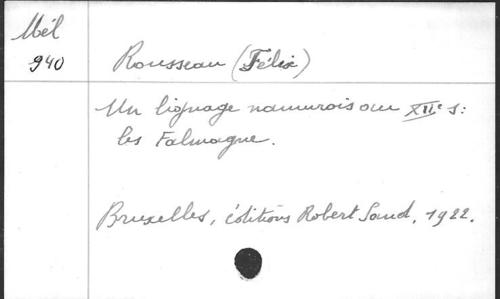 Mél
940
Rousseau (Félix)
Un lignage namurois au XIIe s:
les Falmagne.
Bruxelles, éditions Robert Sand, 1922.